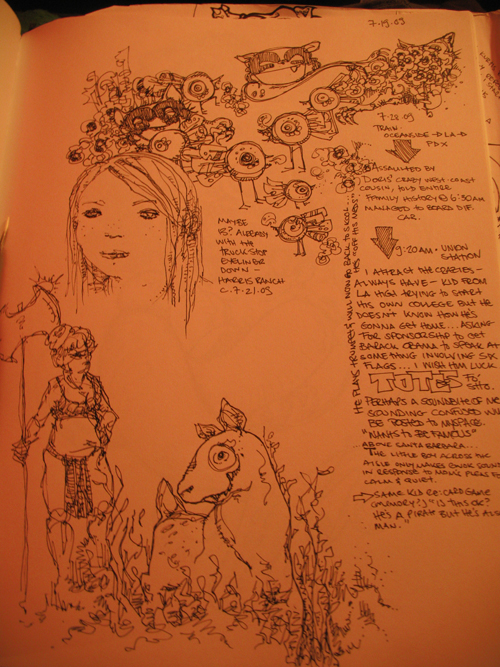 7.19.09
7.22.09
TRAIN
OCEANSIDE → LA →
PDX
ASSAULTED BY
DORIS' CRAZY WEST-COAST
COUSIN, TOLD ENTIRE
FAMILY HISTORY @ 6:30AM
MANAGED TO BOARD DIF.
CAR.
9:20AM - UNION
STATION
I ATTRACT THE CRAZIES -
ALWAYS HAVE - KID FROM
LA HIGH TRYING TO START
HIS OWN COLLEGE BUT HE
DOESN'T KNOW HOW HE'S
GONNA GET HOME... ASKING
FOR SPONSORSHIP TO GET
BARACK OBAMA TO SPEAK AT
SOMETHING INVOLVING SIX
FLAGS... I WISH HIM LUCK
TOTES FO'
SHO.
PERHAPS A SOUNDBITE OF ME
SOUNDING CONFUSED WILL
BE POSTED TO MYSPACE.
"WANTS TO BE FAMOUS"
...ABOVE SANTA BARBARA...
THE LITTLE BOY ACROSS THE
AISLE ONLY MAKES SOUND
IN RESPONSE TO MOM'S PLEAS FOR
CALM & QUIET.
→ SAME KID RE: CARD GAME
(MEMORY?) "IS THIS OK?
HE'S A PIRATE BUT HE'S ALSO
MAN."
HE PLAYS TRUMPET & WILL NOW GO BACK TO SCHOOL... HE'S "OFF HIS MEDS"
MAYBE
IS? ALREADY
WITH THE
TRUCK SIDE
EYELINER
DOWN -
HARRIS RANCH
C. 7.21.09